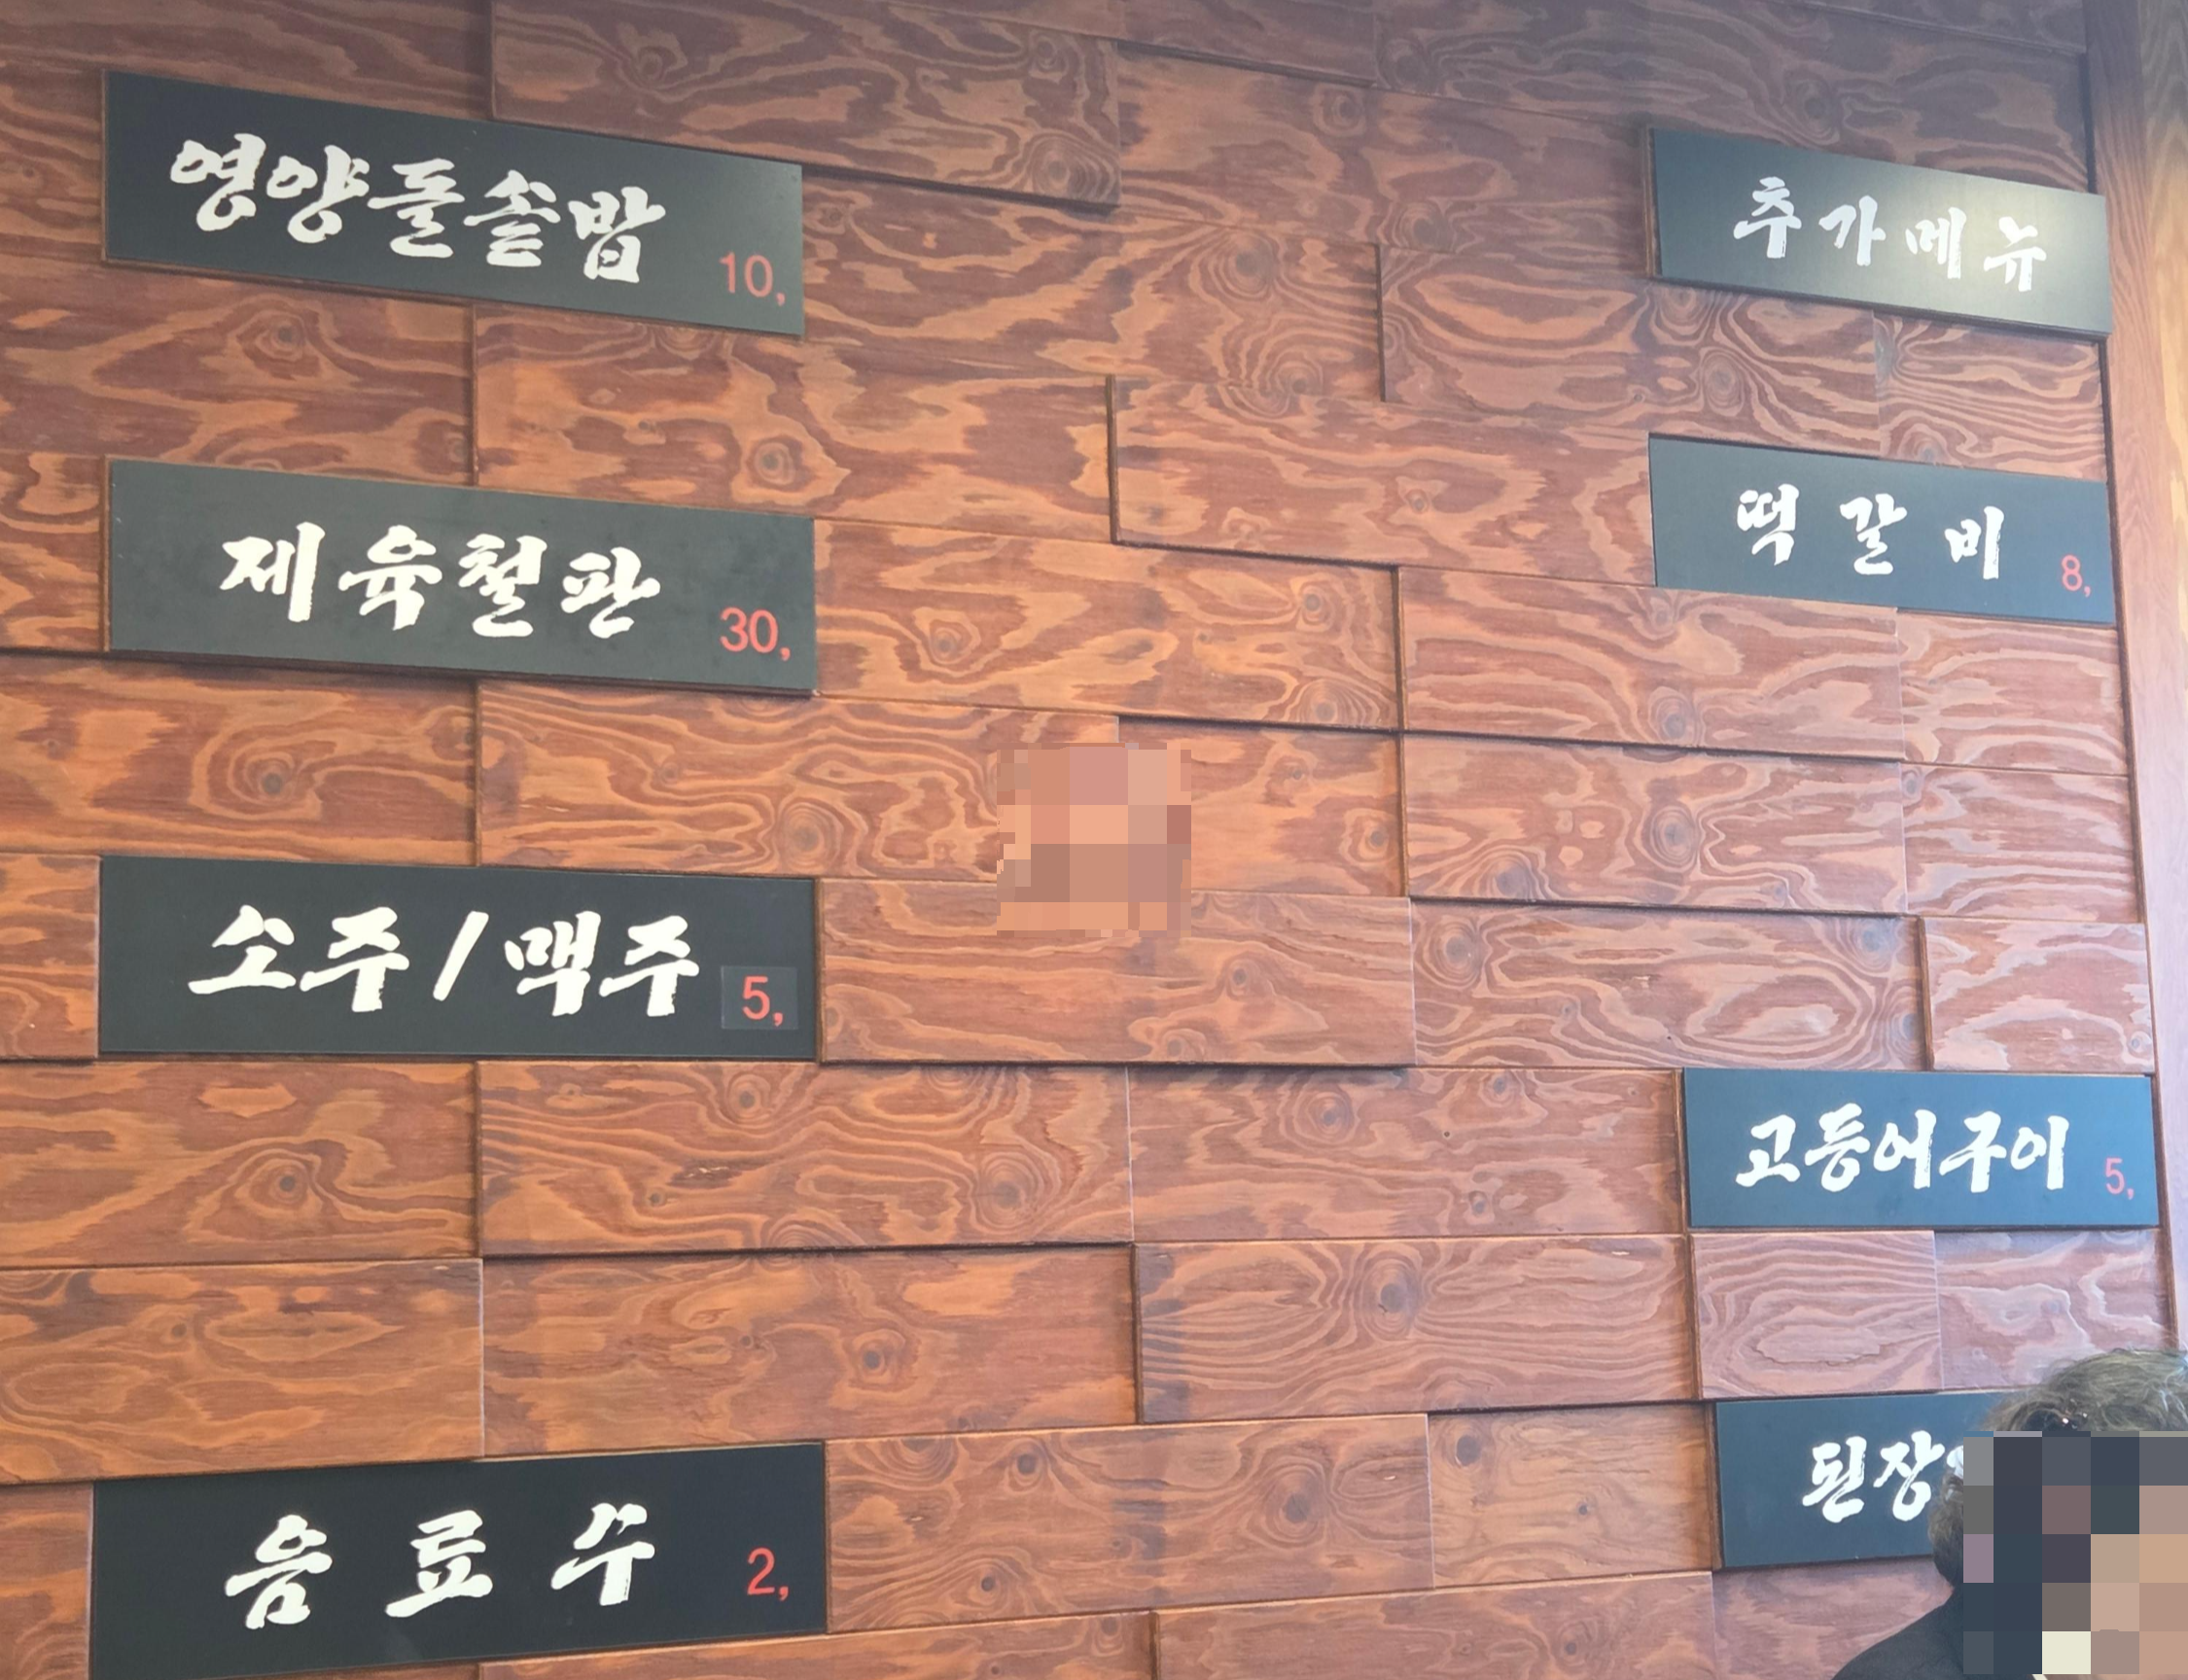 영양돌솥밥 10,
제육철판 30,
소주/맥주 5,
음료수 2,
추가메뉴
떡갈비 8,
고등어구이 5,
된장